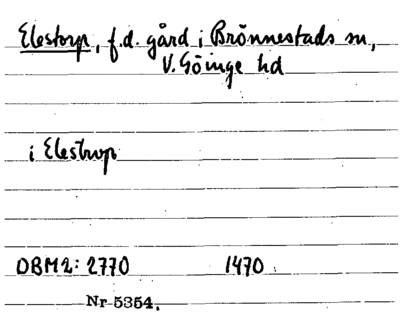 Elestorp, f.d. gård i Brönnestads sn,
V. Göinge hd
i Elestrop
DBM2: 2770 1470
Nr 5354.